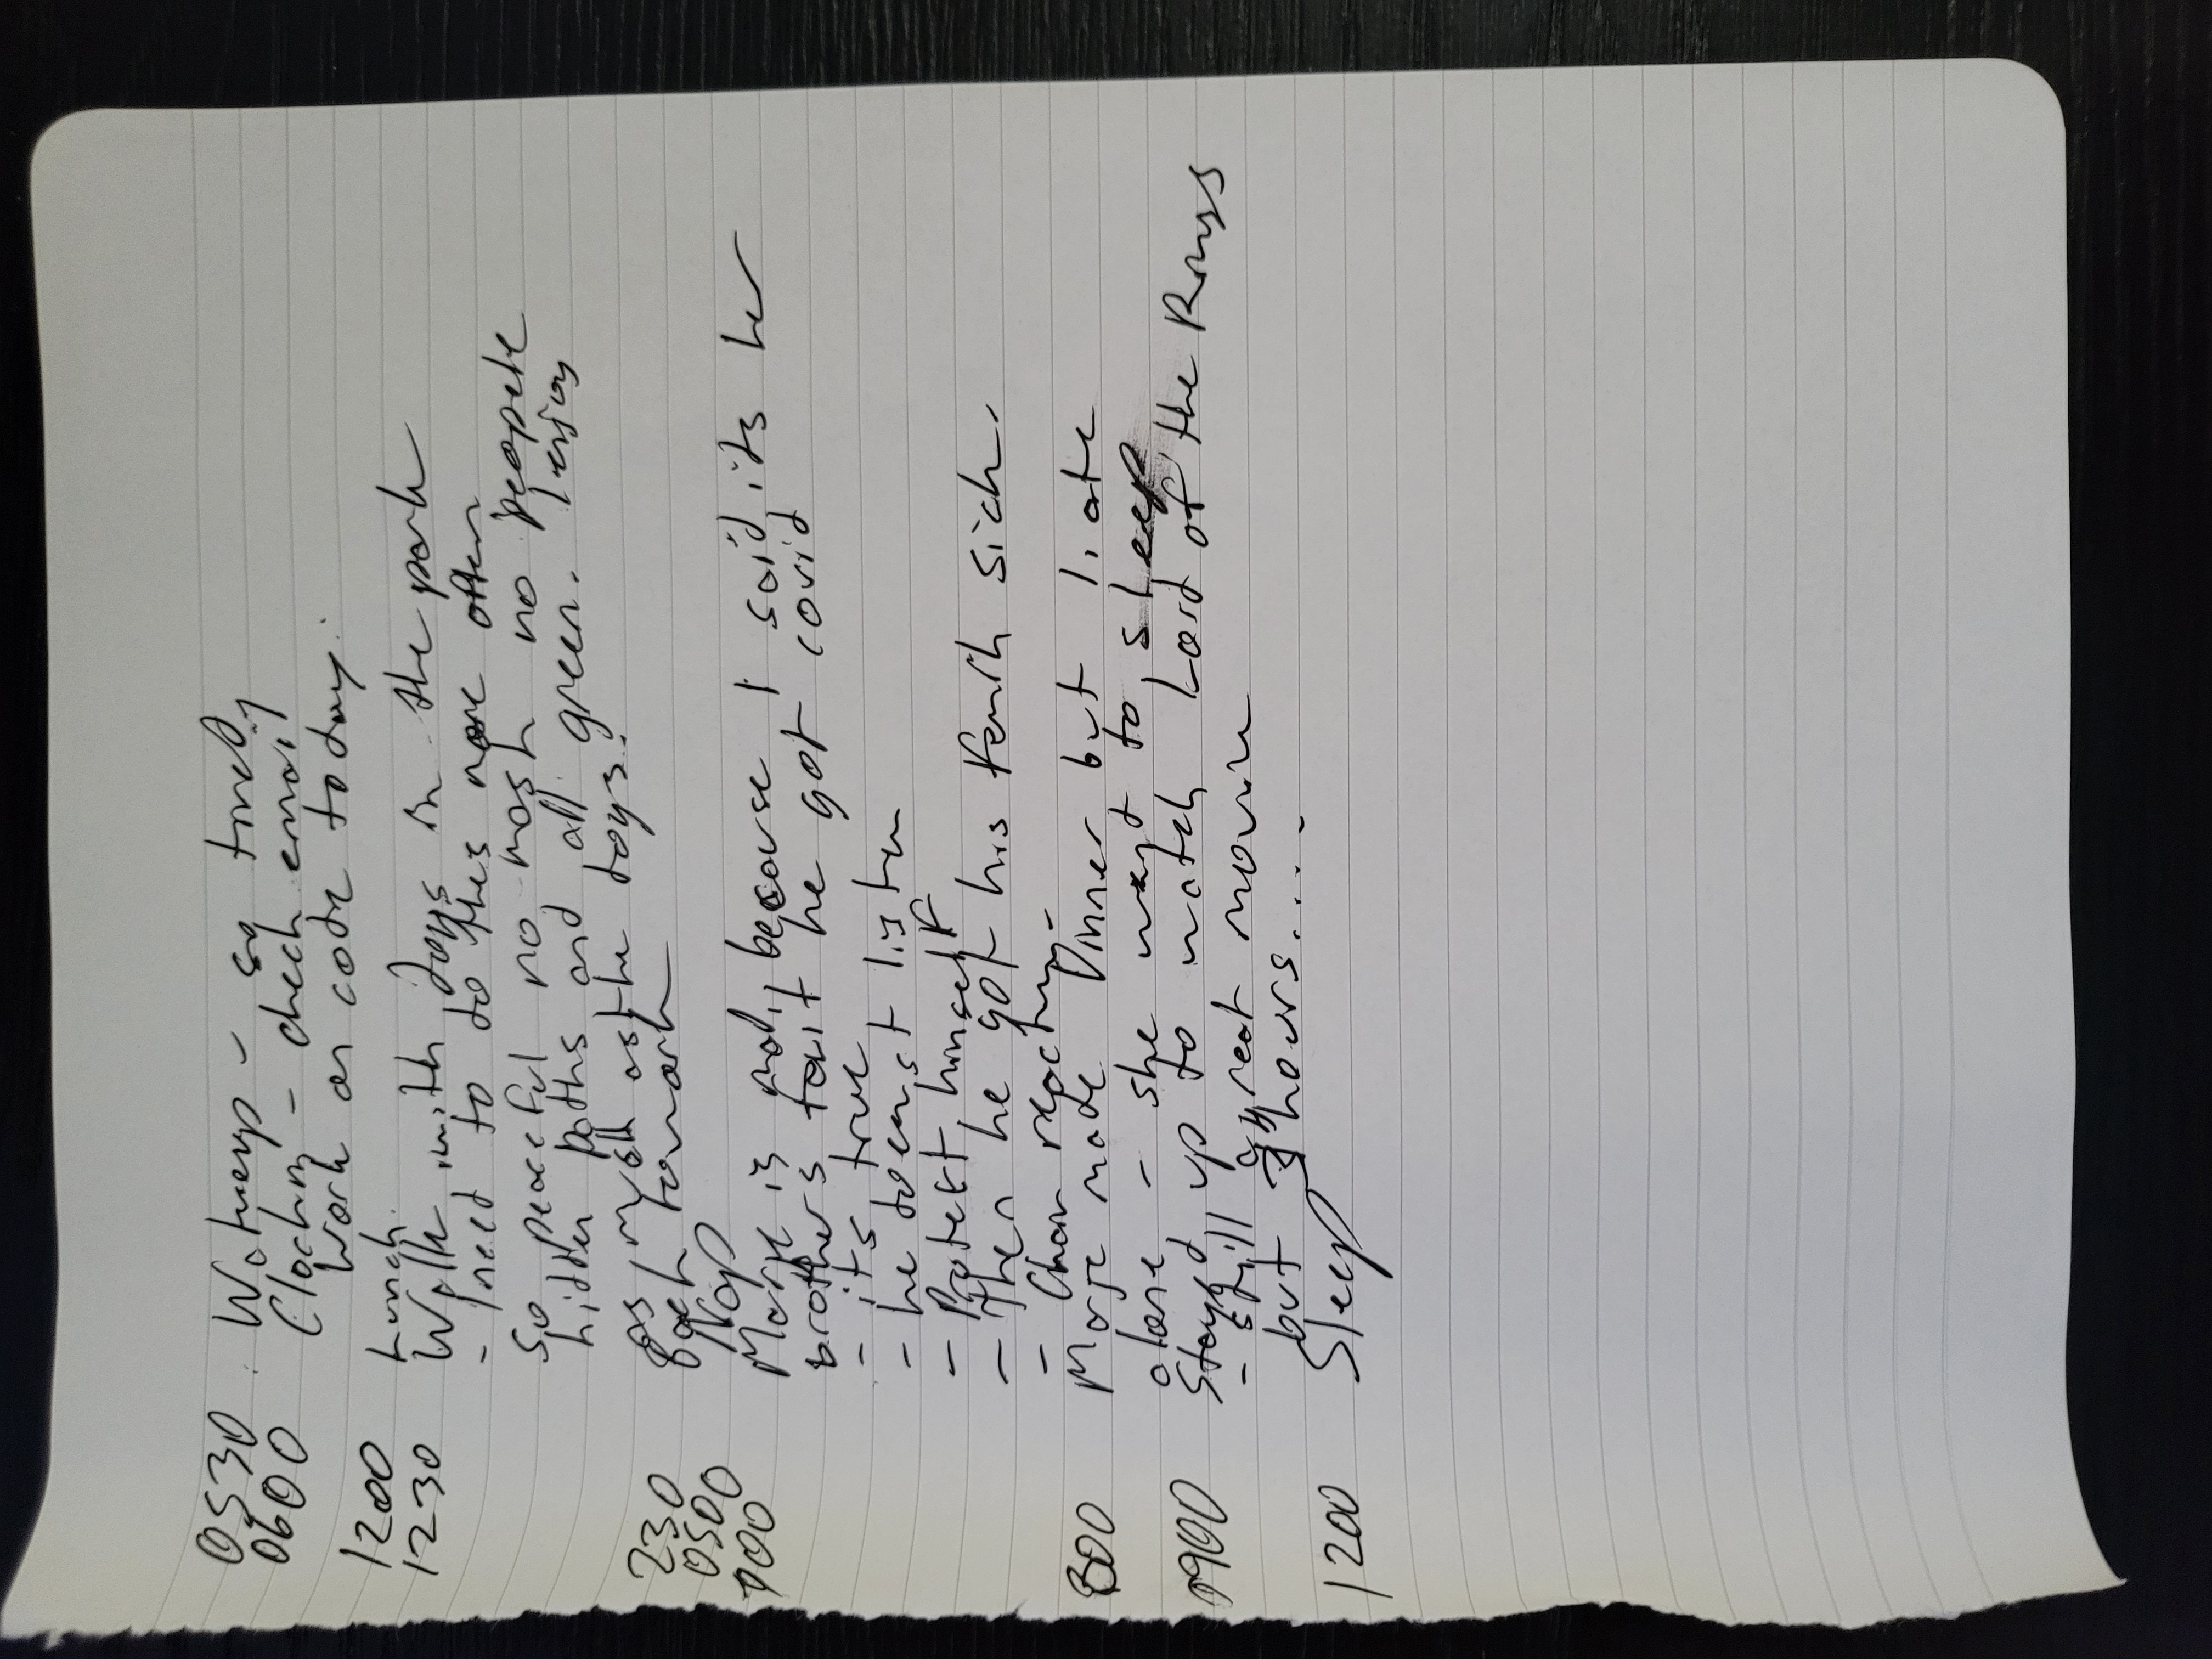 0530 Wakeup - so tired
0600 Clockin - check email
Work on code today.
1200 Lunch.
1230 Walk with dogs in the park
- I need to do this more often
So peaceful no mask no people
hidden paths and all green. I enjoy
as much as the dogs.
230 Back to work
0500 Nap
700 Marje is mad, because I said its her
brothers fault he got covid
- its true
- he doesnt listen
- Protect himself
- Then he got his family sick.
- Chain reaction
800 Marje made Dinner but I ate
alone - she went to sleep
0900 Stayed up to watch Lord of the Rings
- still a great movie
but 3 hours....
1200 Sleep